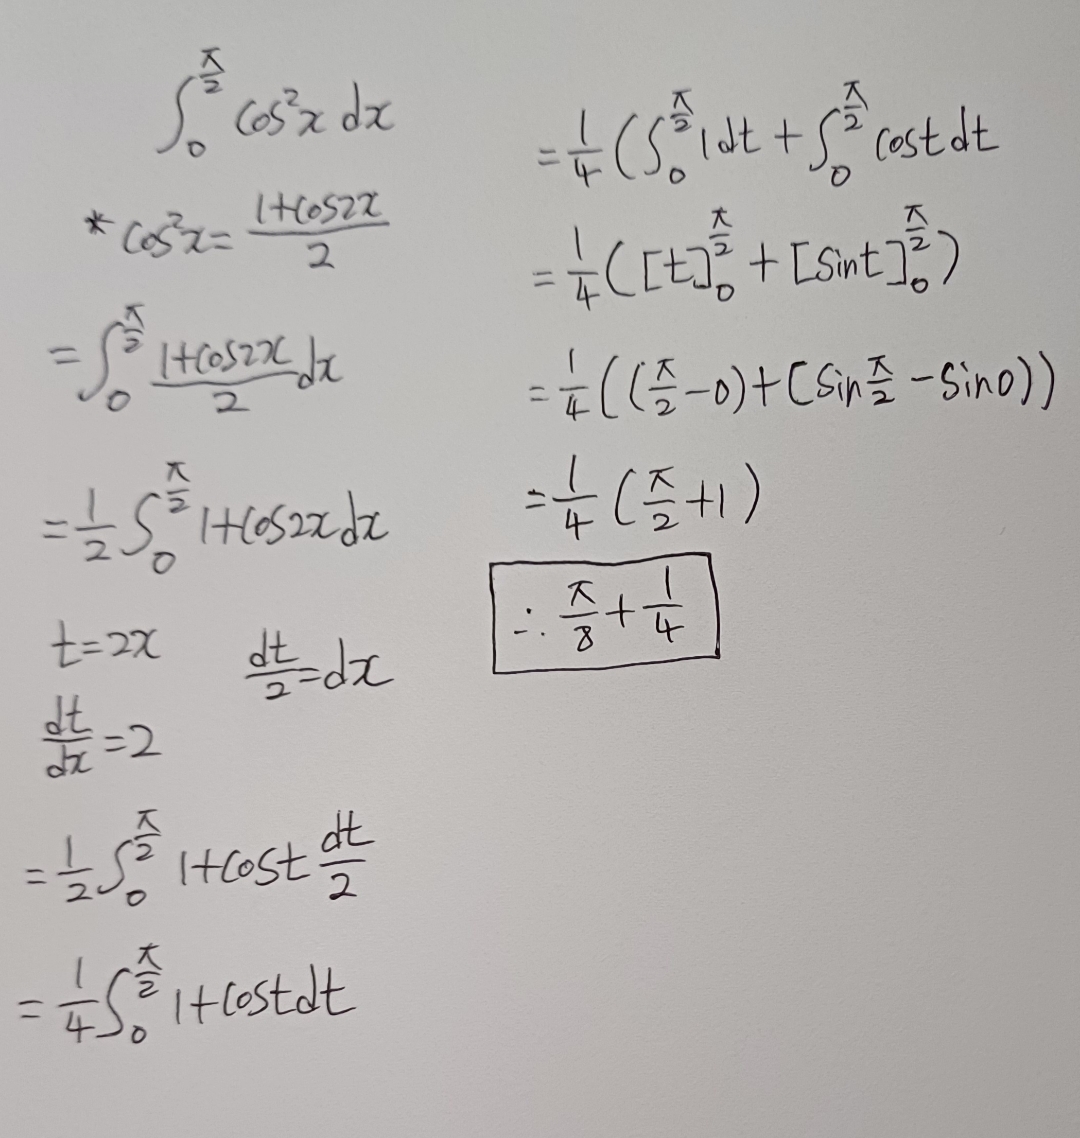 ∫₀^(π/2) cos²x dx
* cos²x = (1+cos2x)/2
= ∫₀^(π/2) (1+cos2x)/2 dx
= 1/2 ∫₀^(π/2) 1+cos2x dx
t=2x dt/2 = dx
dt/dx = 2
= 1/2 ∫₀^(π/2) 1+cost dt/2
= 1/4 ∫₀^(π/2) 1+cost dt
= 1/4 (∫₀^(π/2) 1dt + ∫₀^(π/2) cost dt
= 1/4 ([t]₀^(π/2) + [sint]₀^(π/2))
= 1/4 ((π/2 - 0) + (sin π/2 - sin0))
= 1/4 (π/2 + 1)
∴ π/8 + 1/4